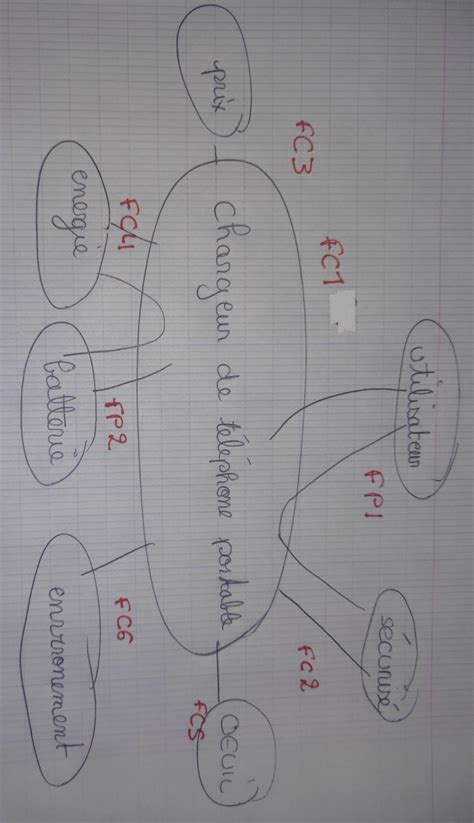 utilisateur
sécurisé
FC1
FP1
FC2
FC3
prix
chargeur de téléphone portable
OEUIL
FC5
FC4
FP2
FC6
energie
batterie
environement